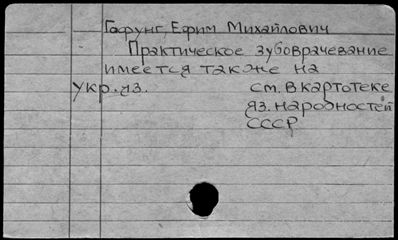 Гофунг, Ефим Михайлович
Практическое зубоврачевание
имеется также на
укр. яз. см. в картотеке
яз. народностей
СССР